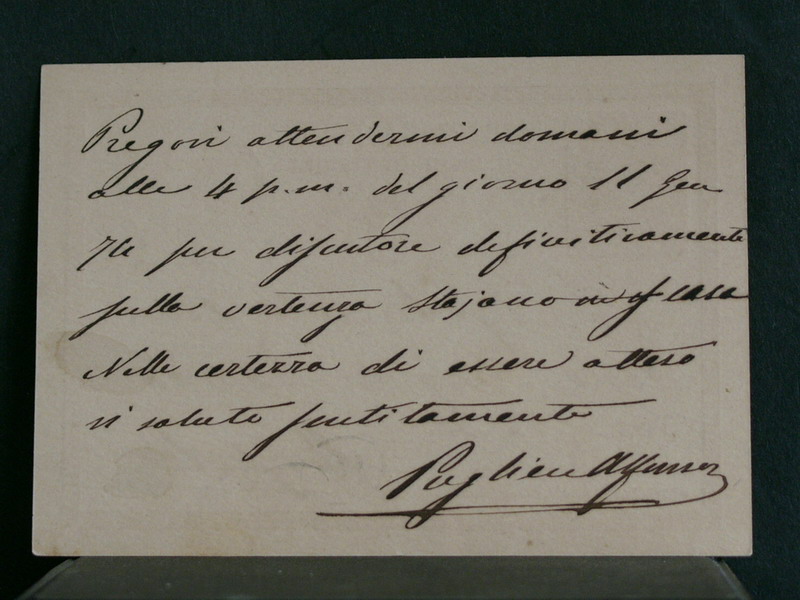 Pregovi attendermi domani
alle 4 p.m. del giorno 11 Gen
74 per discutere definitivamente
sulla vertenza Stajano in casa
Nella certezza di essere atteso
vi saluto sentitamente
Puglieu Alfonso